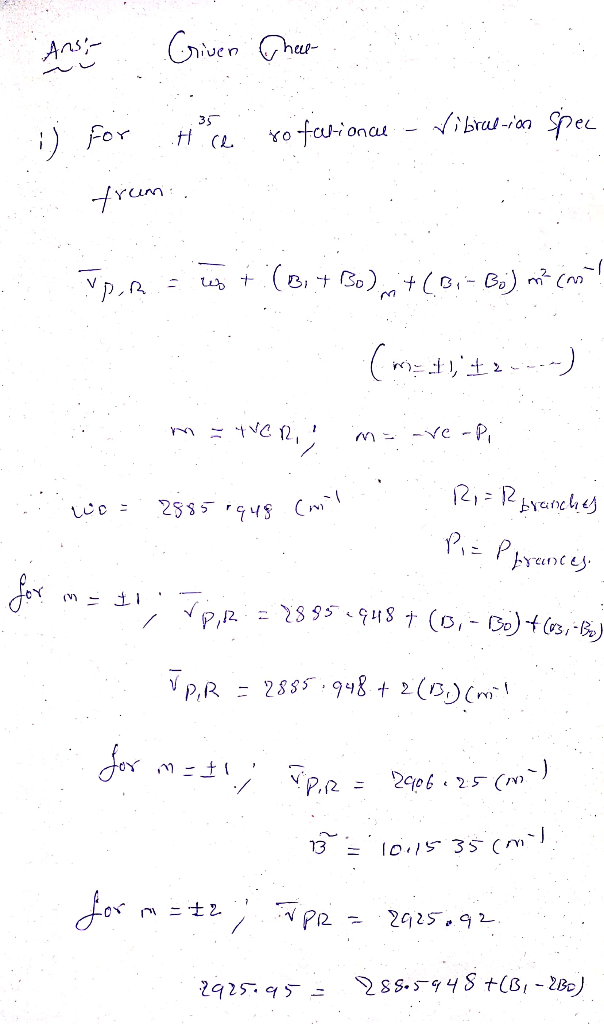 Ans:- Given that
i) For H³⁵Cl rotational - Vibration Spec
trum.
ν̅P,R = ω̅0 + (B1 + B0)m + (B1 - B0) m² cm⁻¹
(m = ±1, ±2 ----)
m = +ve R, ; m = -ve - P,
ω0 = 2885.948 cm⁻¹ R, = R branches
P, = P brances.
for m = ±1 ; ν̅P,R = 2885.948 + (B1 - B0) + (B1 - B0)
ν̅P,R = 2885.948 + 2(B1) cm⁻¹
for m = ±1 ; ν̅P,R = 2906.25 cm⁻¹
B̃ = 10.1535 cm⁻¹
for m = ±2 ; ν̅PR = 2925.92
2925.95 = 288.5948 + (B1 - 2B0)